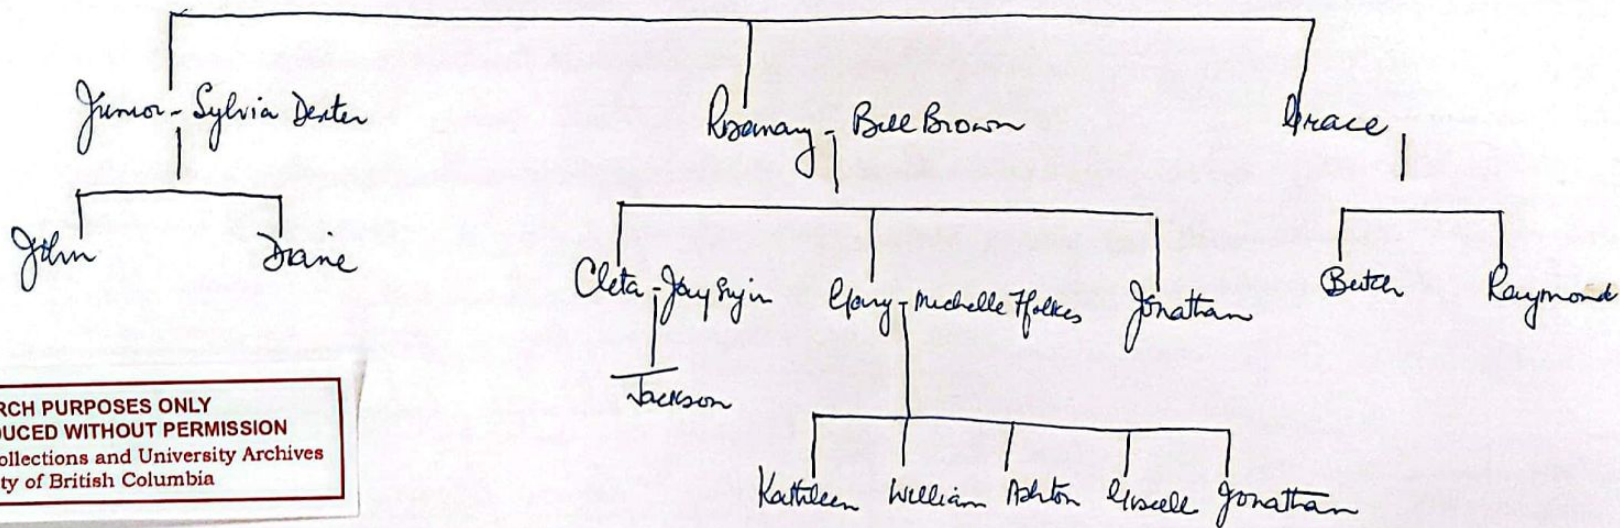 Junior - Sylvia Dexter
Rosemary - Bill Brown
Grace
John
Diane
Cleta - Jay
Gary - Michelle
Jonathan
Butch
Raymond
Jackson
Kathleen William Ashton Giselle Jonathan
RCH PURPOSES ONLY
DUCED WITHOUT PERMISSION
ollections and University Archives
ty of British Columbia